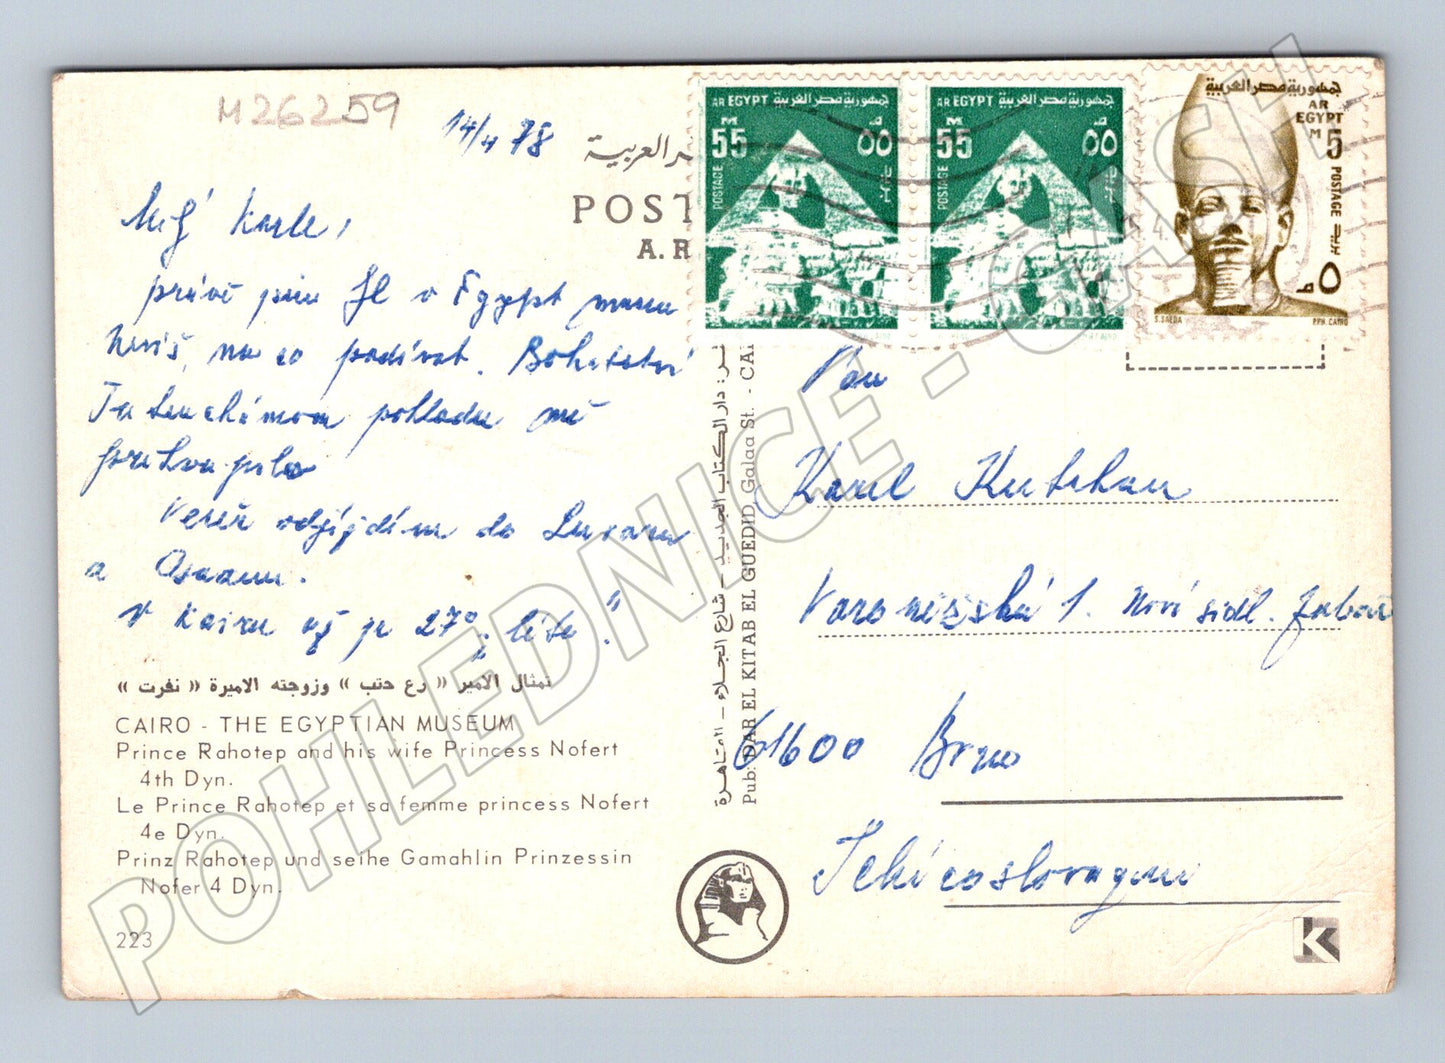 M26259
14/4 78
Milý Karle,
právě jsem zde v Egypt
Nevíš, na co podívat. Bohatství
Tutanchámonova pokladu mě
překvapilo
Večer odjíždím do Luxoru
a Asuanu.
V Kairu už je 27°C
تمثال الامير « رع حتب » وزوجته الاميرة « نفرت »
CAIRO - THE EGYPTIAN MUSEUM
Prince Rahotep and his wife Princess Nofert
4th Dyn.
Le Prince Rahotep et sa femme princess Nofert
4e Dyn.
Prinz Rahotep und seihe Gamahlin Prinzessin
Nofer 4 Dyn.
223
ر العربية
POST
A. R
دار الكتاب الجديد - شارع الجلاء - القاهرة
Pub: DAR EL KITAB EL GUEDID, Galaa St. - CA
AR EGYPT جمهورية مصر العربية
M
55 ٥٥
POSTAGE بريد
AR EGYPT جمهورية مصر العربية
M
55 ٥٥
POSTAGE بريد
جمهورية مصر العربية
AR
EGYPT
M 5
POSTAGE بريد
٥ م
S. SAEDA P.P.H. CAIRO
Pan
Karel Kutchan
1. Nové sidl.
61600 Brno
K
POHLEDNICE - CASH